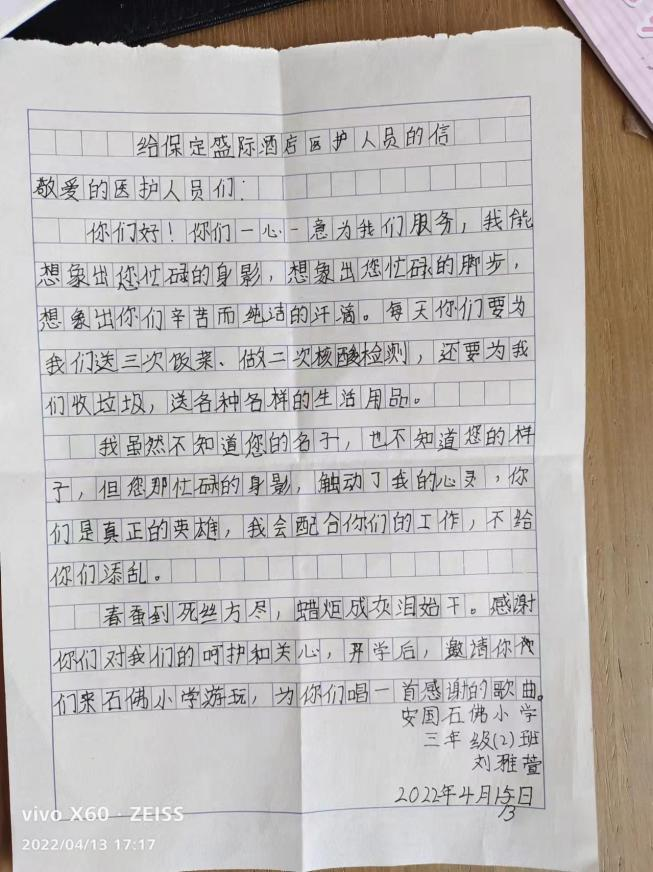 给保定盛际酒店医护人员的信
敬爱的医护人员们：
你们好！你们一心一意为我们服务，我能
想象出您忙碌的身影，想象出您忙碌的脚步，
想象出你们辛苦而纯洁的汗滴。每天你们要为
我们送三次饭菜、做二次核酸检测，还要为我
们收垃圾，送各种各样的生活用品。
我虽然不知道您的名子，也不知道您的样
子，但您那忙碌的身影，触动了我的心灵，你
们是真正的英雄，我会配合你们的工作，不给
你们添乱。
春蚕到死丝方尽，蜡炬成灰泪始干。感谢
你们对我们的呵护和关心，开学后，邀请你
们来石佛小学游玩，为你们唱一首感谢的歌曲。
安国石佛小学
三年级(2)班
刘雅萱
2022年4月15日
13
vivo X60 · ZEISS
2022/04/13 17:17